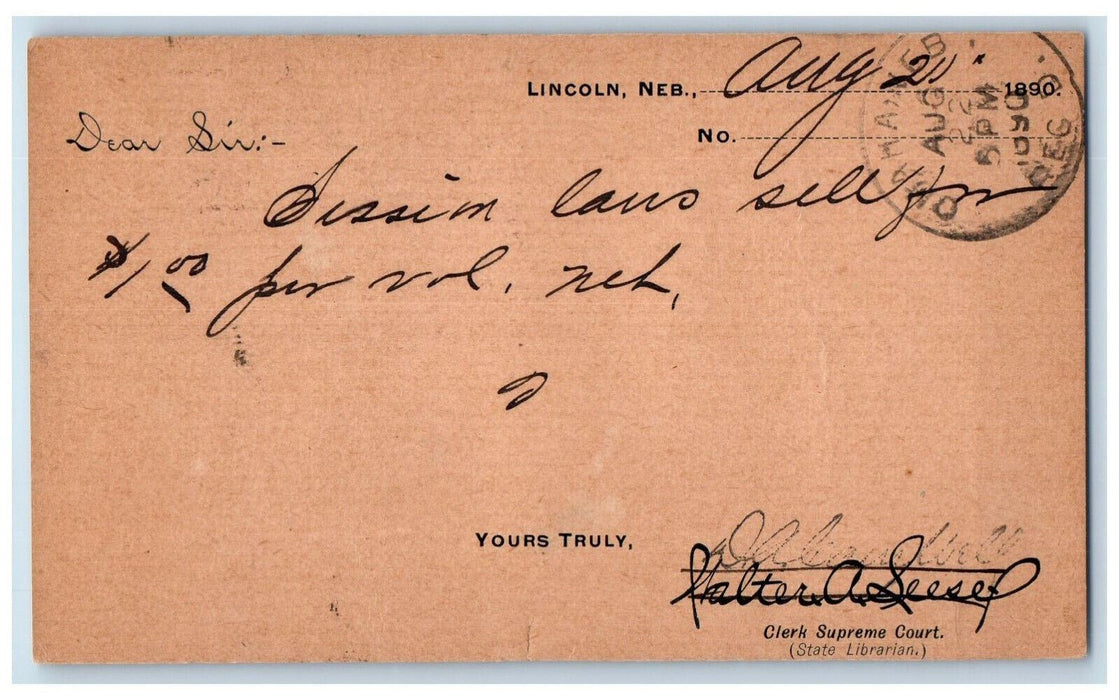 LINCOLN, NEB., Aug 21" 1890.
No.
Dear Sir:-
Session laws sell for
$1.00 per vol. net,
YOURS TRULY,
D. A. Campbell
Walter A. Leese
Clerk Supreme Court.
(State Librarian.)
OMAHA, NEB.
AUG 22
3 PM
1890
REC'D.